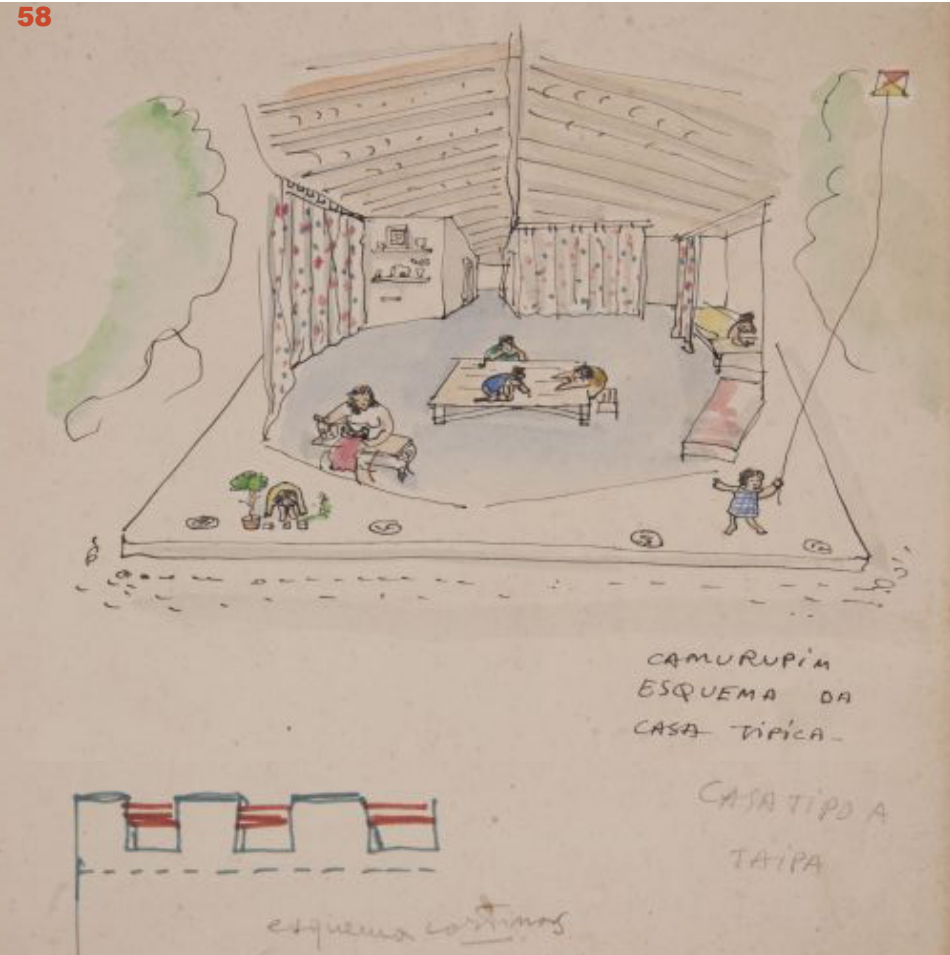 58
CAMURUPIM
ESQUEMA DA
CASA TIPICA
CASA TIPO A
TAIPA
esquema cortinas